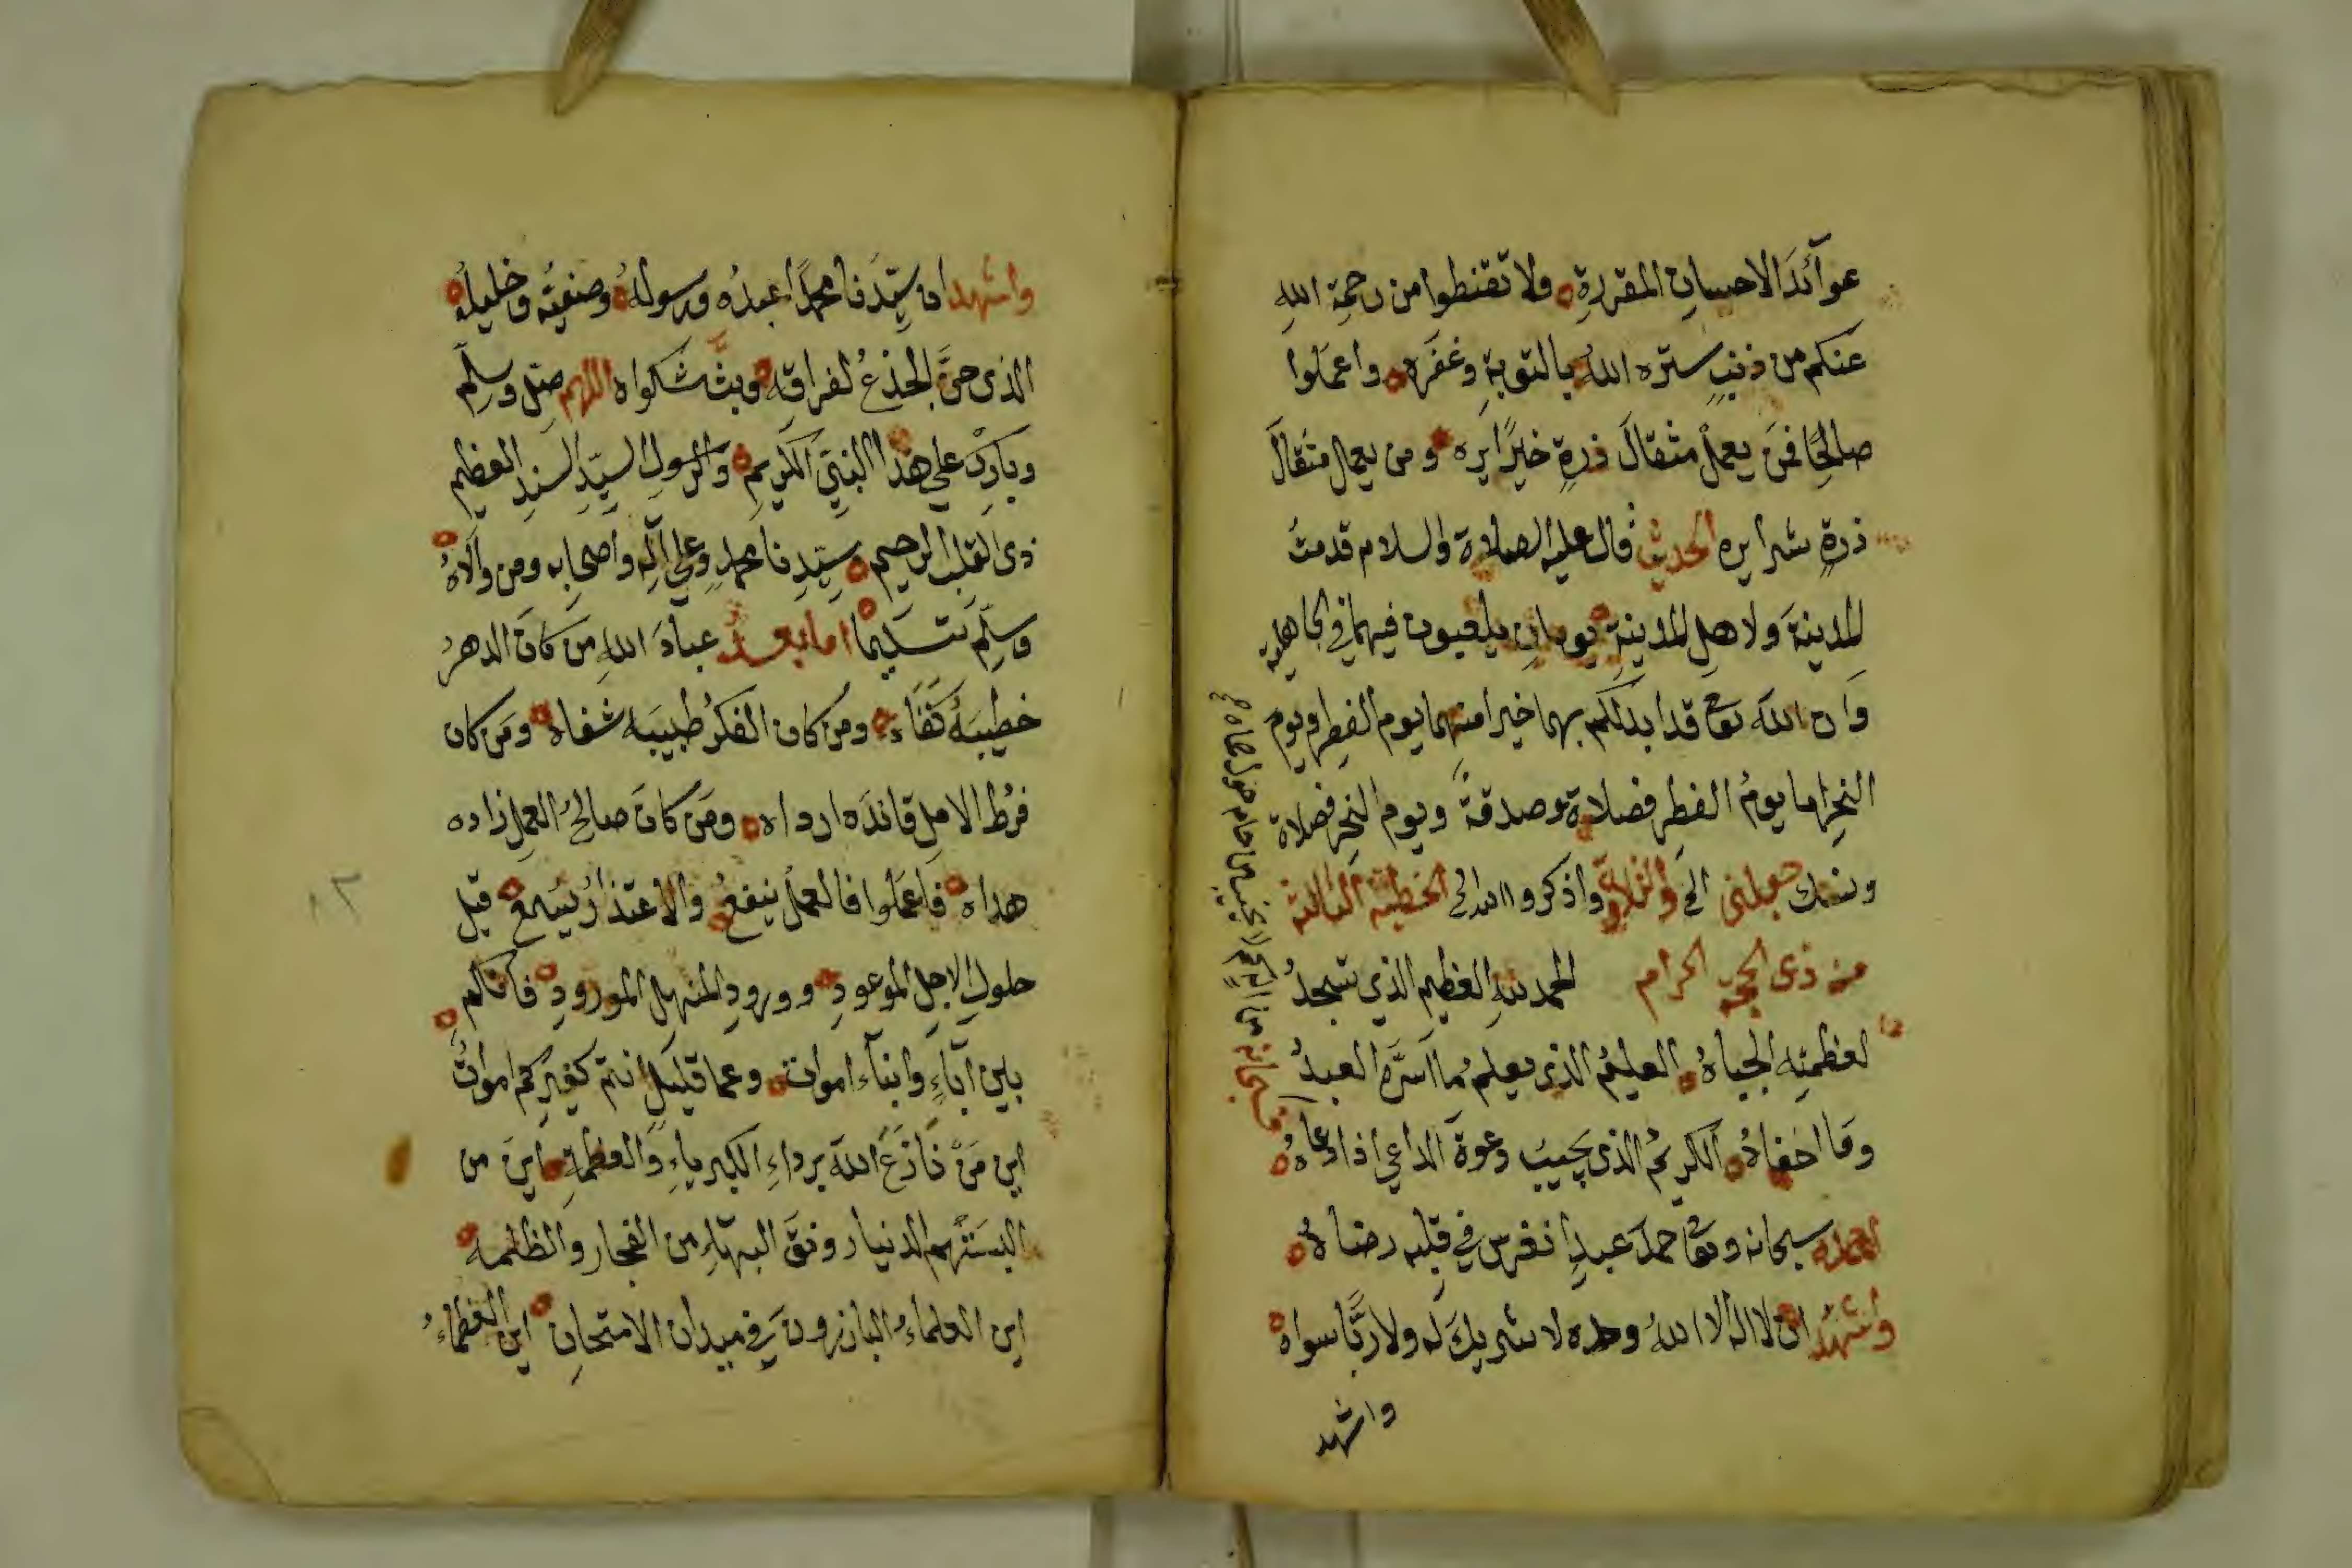 عوآئدَ الاحسانِ المقررةِ ولا تقنطوا من رحمةِ اللهِ
عنكم من ذنبٍ ستره اللهُ بالتوبةِ وغفَره واعمَلوا
صالحًا فمَن يعملْ مثقالَ ذرةٍ خيرًا يَره ومن يعمل مثقالَ
ذرةٍ شرا يره الحديث قال عليه الصلاة والسلام قدمتُ
المدينةَ ولاهلِ المدينةِ يومانِ يلعبون فيهما في الجاهلية
وَان الله تعالى قد ابدلكم بهما خيرا منهما يوم الفطرِ ويوم
النحرِ اما يومُ الفطرِ فصلاة وصدقةً ويوم النحر فصلاة
ونسك جعلني الخ والتلاوة واذكروا الله الخ الخطبة الثالثة
من ذى الحجة الحرام الحمد للهِ العظيمِ الذي تسجدُ
لعظمتِه الجباهُ العليمُ الذى يعلمُ ما اَسَرَّه العبدُ
وَما اخفاهُ الكريمُ الذى يجيبُ دعوةَ الداعي اذا دعاهُ
احمده سبحانه وتعالى حمدَ عبدٍ انغرس في قلبِه رضاهُ
واشهد ان لا اله الا اللهُ وحده لا شريكَ له ولا ربًّا سواهُ
واشهد
فسبحانه من اله
واشهد ان سيّدَنا محمدًا عبدُه ورسولُهُ وصفيُّه وخليلُهُ
الذى حنَّ الجذعُ لفراقِه وبثَّ شكواه اللهم صل وسلِّم
وبارِك على هذا النبيِّ الكريمِ والرسولِ السيِّدِ السنِدِ العظيم
ذى القلب الرحيم سيّدِنا محمدٍ وعلى آلِه واصحابِه ومن والاَهُ
وسلِّم تسليما اما بعد عبادَ اللهِ مَن كانَ الدهرُ
خطيبَهُ كفَاه ومن كان الفكرُ طبيبَه شفاه ومَن كان
فرْطُ الاملِ قائدَه ارداه ومَن كانَ صالحُ العملِ زاده
هداه فاعمَلوا فالعملُ ينفعُ والاعتذارُ يُسمع قبل
حلولِ الاجلِ الموعودِ وورودِ المنهلِ المورودِ فانكم
بين آباءٍ وابنآء امواتٍ وعما قليلٍ انتم كغيرِكم امواتٌ
اين مَنْ نَازَعَ اللهَ برداءِ الكبرياءِ والعظمةِ اينَ من
البسَتْهم الدنيا رونقَ البهآءِ من الفجار والظلمه
اين العلماءُ البارزون في ميدان الامتحانِ اين العظماءُ